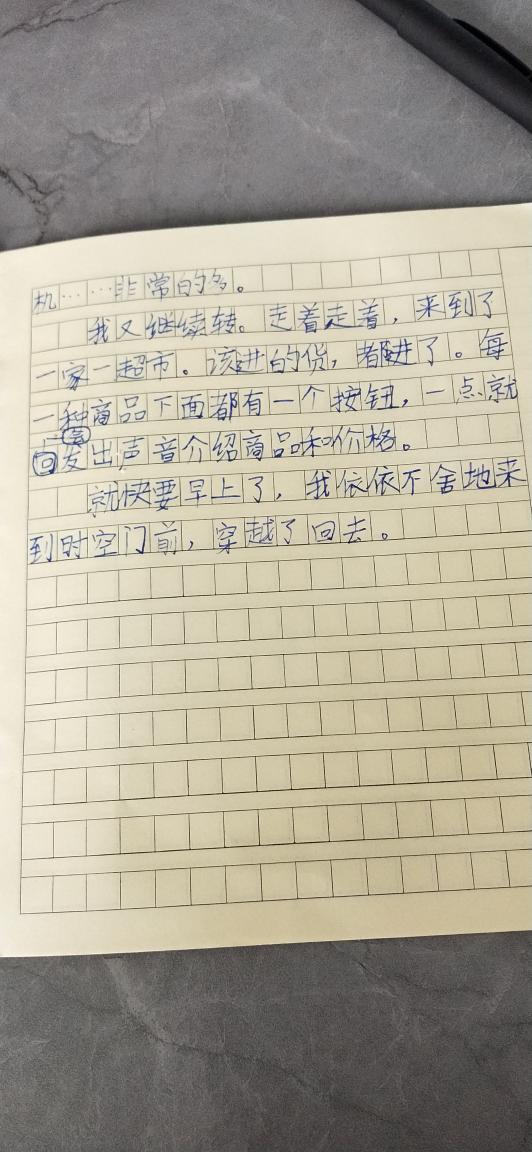 机……非常的多。
我又继续转。走着走着，来到了
一家一超市。该进的货，都进了。每
一种商品下面都有一个按钮，一点就
会
发出声音介绍商品和价格。
就快要早上了，我依依不舍地来
到时空门前，穿越了回去。